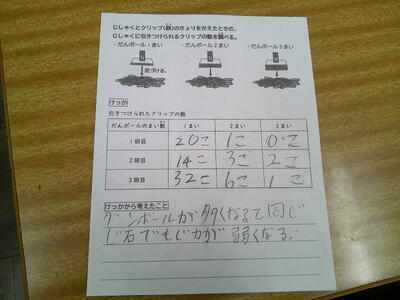 じしゃくとクリップ(鉄)のきょりをかえたときの、
じしゃくに引きつけられるクリップの数を調べる。
・だんボール1まい ・だんボール2まい ・だんボール3まい
近づける。
けっか
引きつけられたクリップの数
だんボールのまい数 1まい 2まい 3まい
1回目 20こ 1こ 0こ
2回目 14こ 3こ 2こ
3回目 32こ 6こ 1こ
けっかから考えたこと
ダンボールが多くなると同じ
じ石でもじ力が弱くなる。